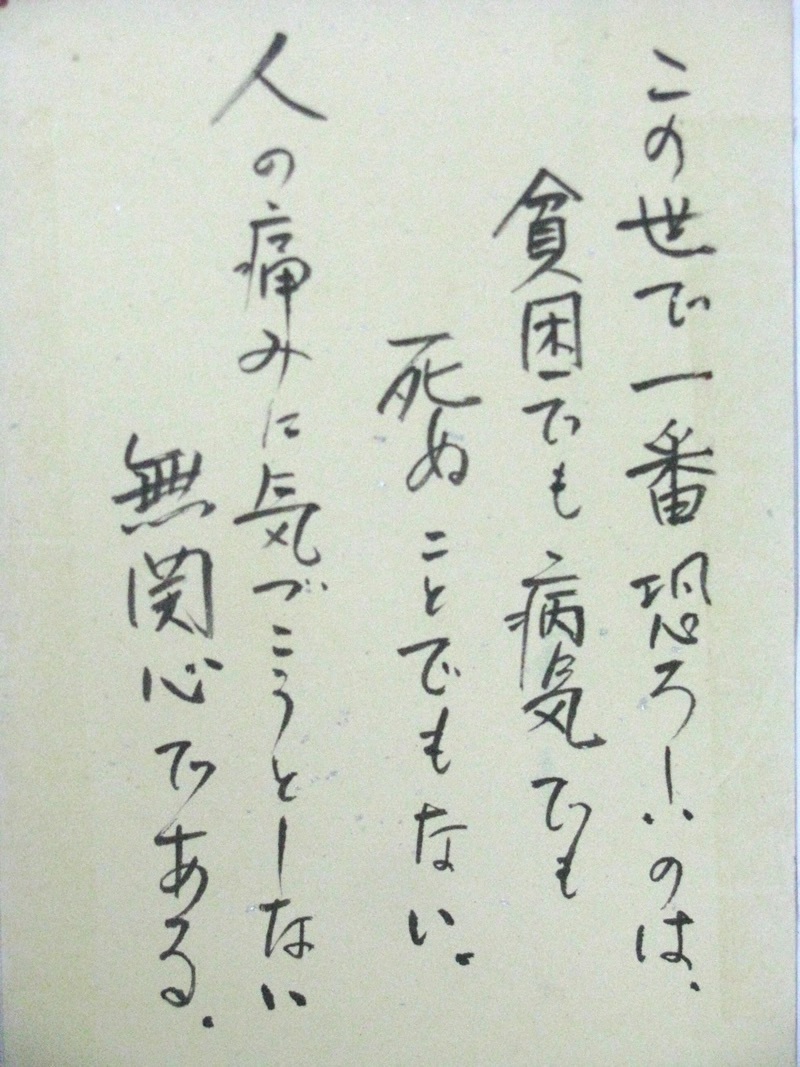 この世で一番恐ろしいのは、
貧困でも病気でも
死ぬことでもない。
人の痛みに気づこうとしない
無関心である。